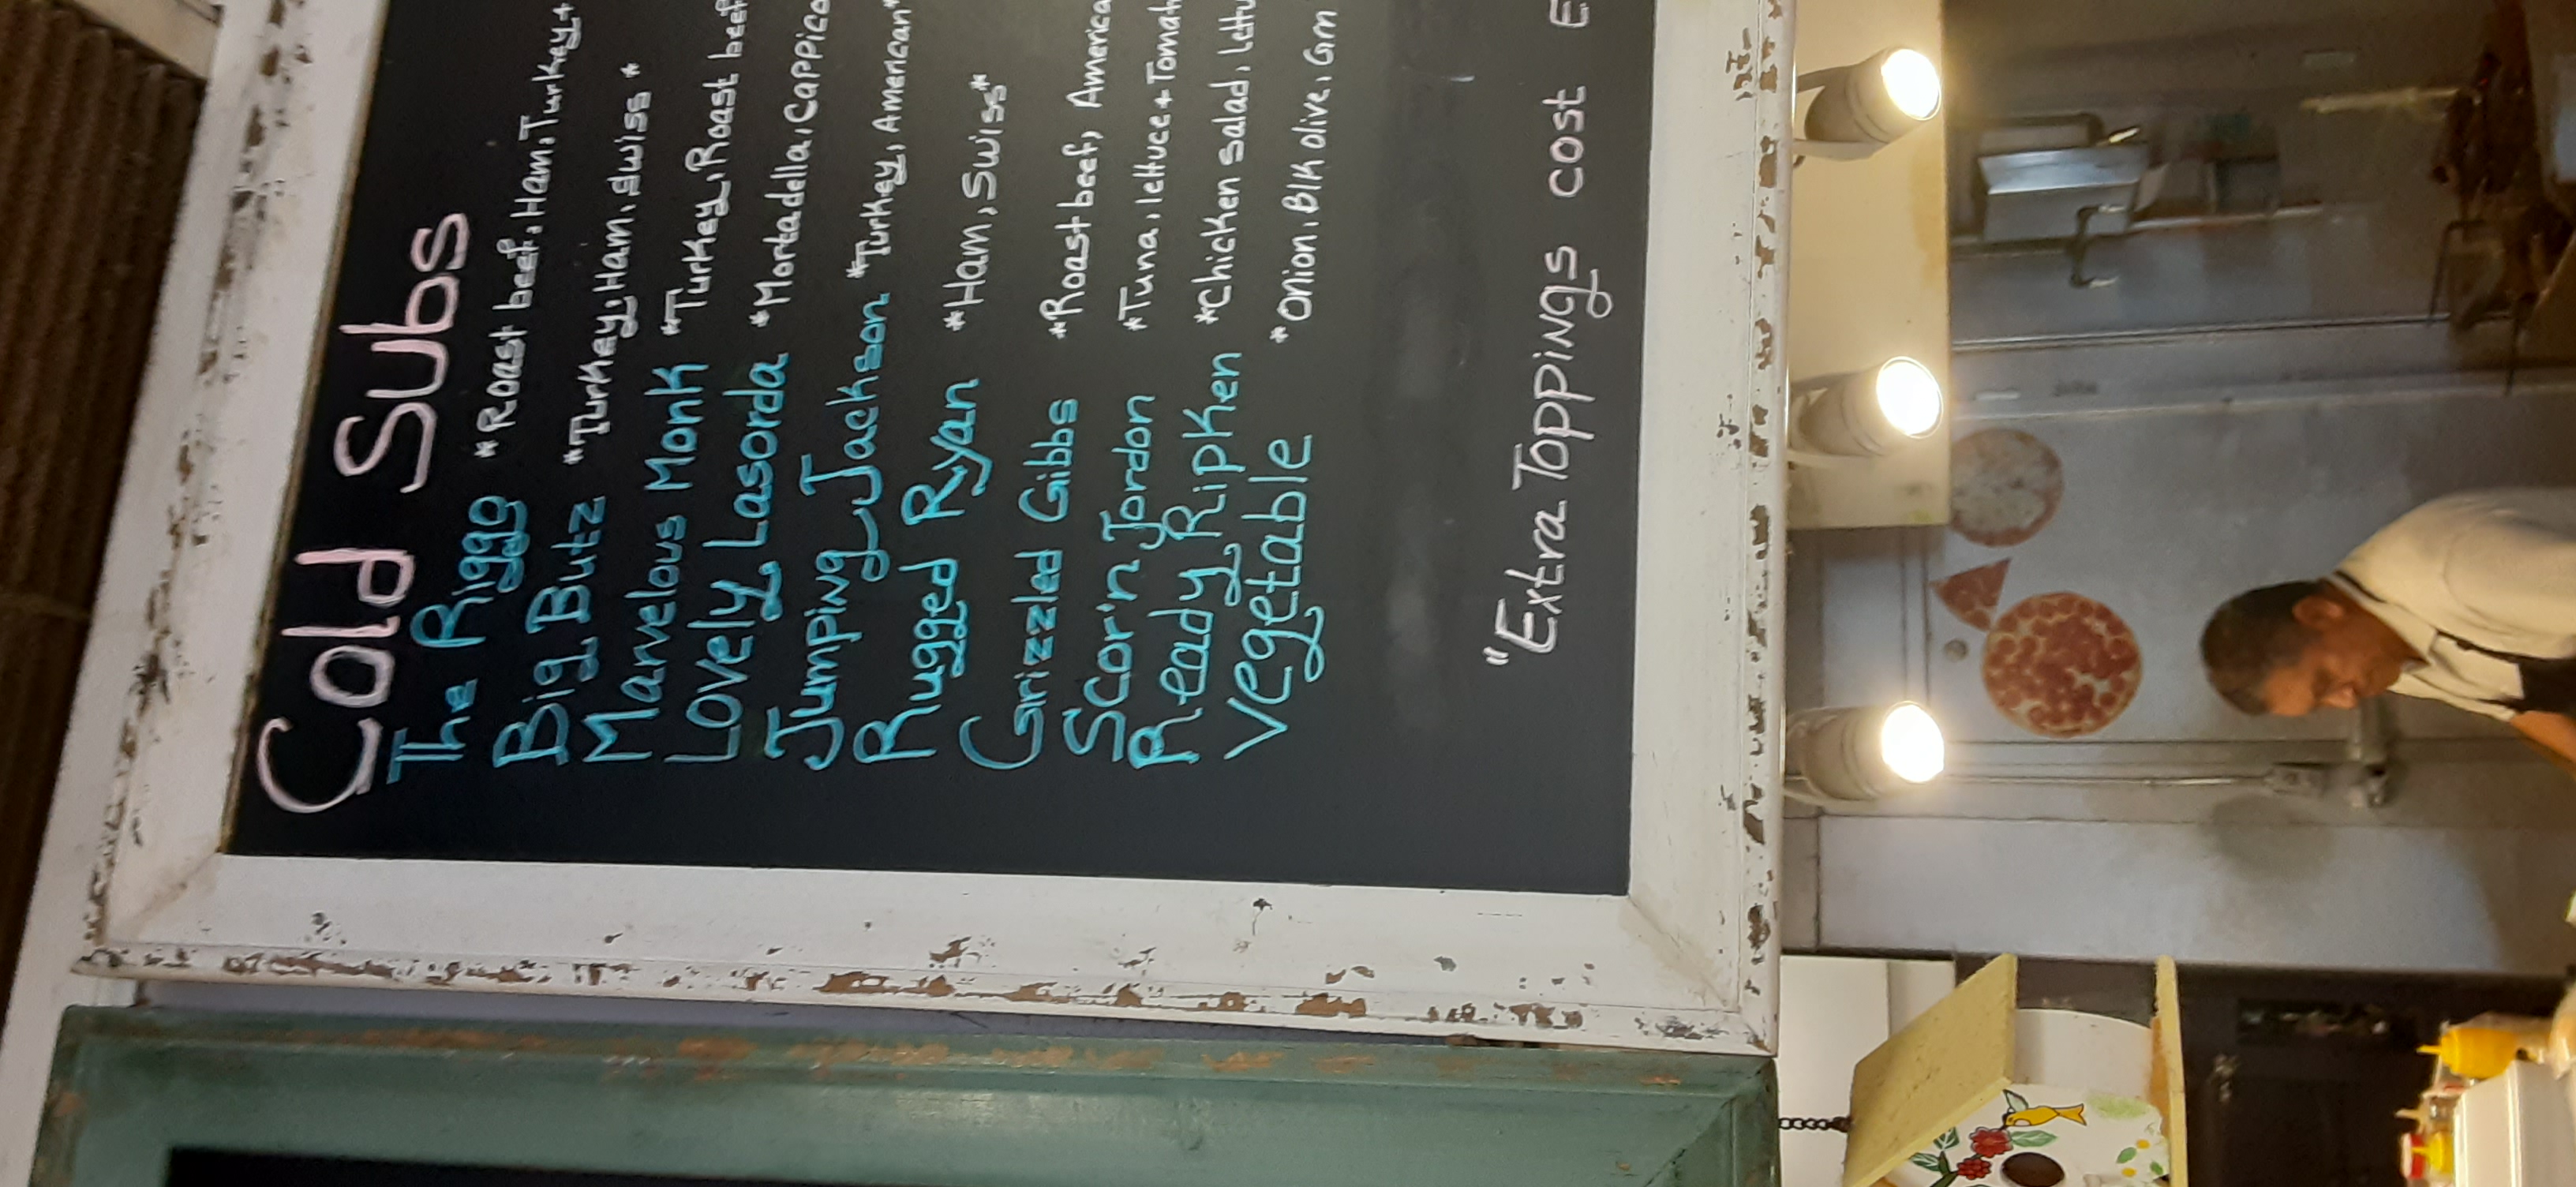 Cold Subs
The Riggo *Roast beef, Ham, Turkey+
Big Butz *Turkey, Ham, Swiss*
Marvelous Monk *Turkey, Roast beef
Lovely Lasorda *Mortadella, Cappico
Jumping Jackson *Turkey, American*
Rugged Ryan *Ham, Swiss*
Grizzled Gibbs *Roast beef, America
Scor'n Jordon *Tuna, lettuce + Tomat
Ready Ripken *Chicken salad, lettu
Vegetable *Onion, Blk olive, Grn
"Extra Toppings cost E